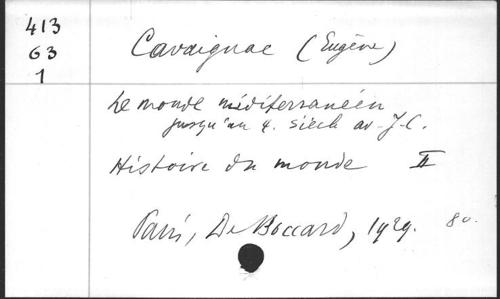 413
63
1
Cavaignac (Eugène)
Le monde méditerranéen
jusqu'au 4. siècle av. J-C.
Histoire du monde II
Paris, De Boccard, 1929. 8o.